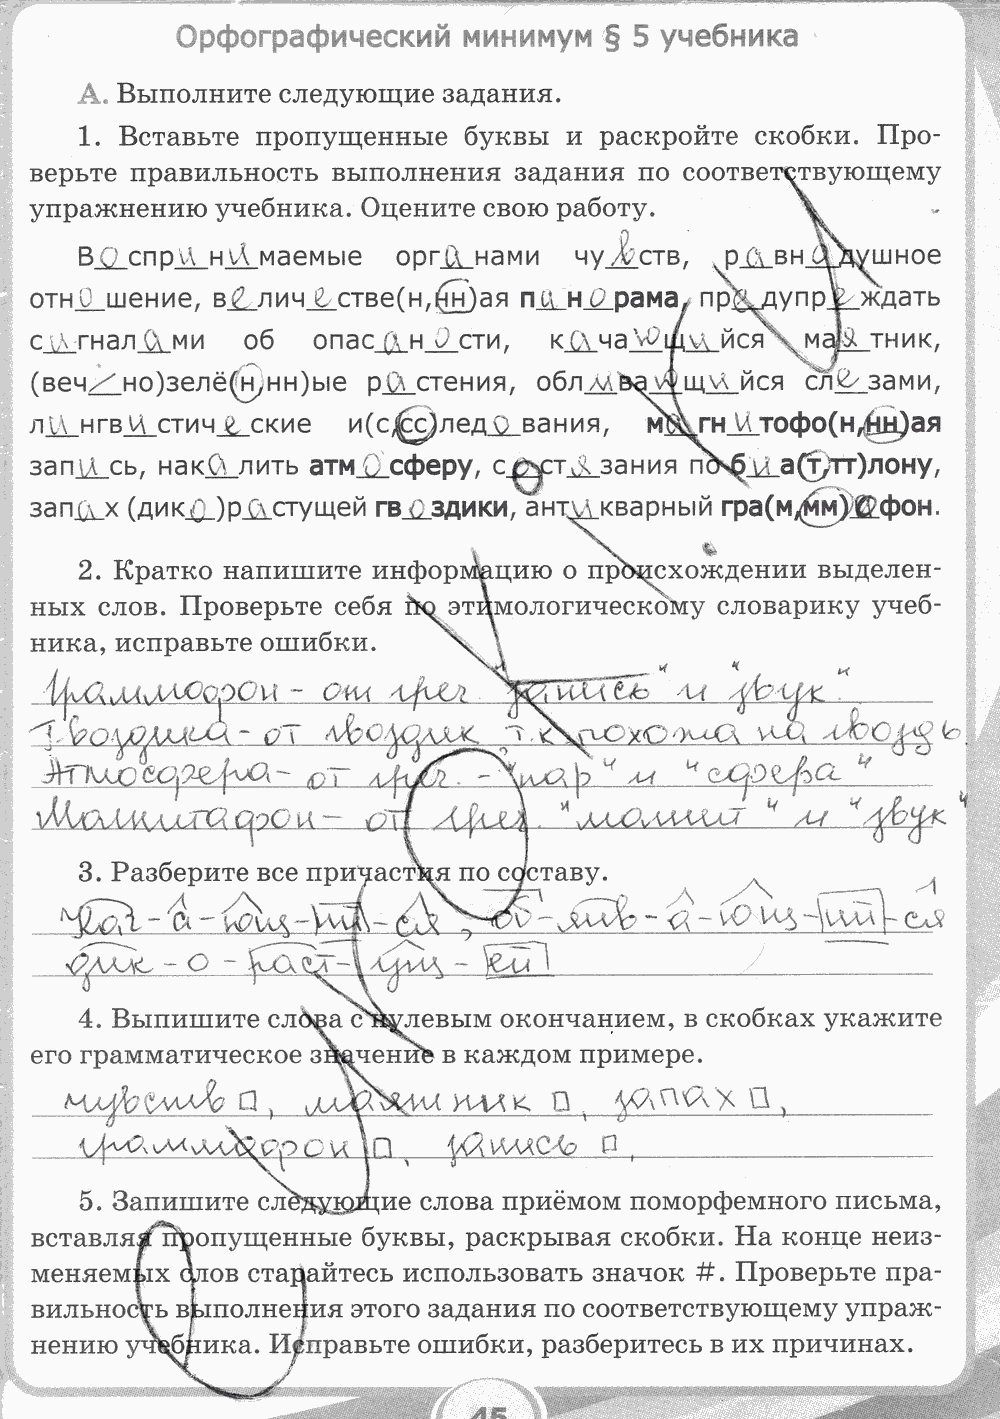 Орфографический минимум § 5 учебника
А. Выполните следующие задания.
1. Вставьте пропущенные буквы и раскройте скобки. Про-
верьте правильность выполнения задания по соответствующему
упражнению учебника. Оцените свою работу.
Воспринимаемые органами чувств, равнодушное
отношение, величестве(н,нн)ая панорама, предупреждать
сигналами об опасности, качающийся маятник,
(веч/но)зелё(н,нн)ые растения, обливающийся слезами,
лингвистические и(с,сс)ледования, магнитофо(н,нн)ая
запись, накалить атмосферу, состязания по биа(т,тт)лону,
запах (дико)растущей гвоздики, антикварный гра(м,мм)офон.
2. Кратко напишите информацию о происхождении выделен-
ных слов. Проверьте себя по этимологическому словарику учеб-
ника, исправьте ошибки.
Граммофон - от греч. "запись" и "звук".
Гвоздика - от гвоздик, т.к. похожа на гвоздь.
Атмосфера - от греч. - "пар" и "сфера"
Магнитафон - от греч. "магнит" и "звук"
3. Разберите все причастия по составу.
Кач-а-ющ-ий-ся, об-лив-а-ющ-ий-ся
дик-о-раст-ущ-ей
4. Выпишите слова с нулевым окончанием, в скобках укажите
его грамматическое значение в каждом примере.
чувств, маятник, запах,
граммофон, запись,
5. Запишите следующие слова приёмом поморфемного письма,
вставляя пропущенные буквы, раскрывая скобки. На конце неиз-
меняемых слов старайтесь использовать значок #. Проверьте пра-
вильность выполнения этого задания по соответствующему упраж-
нению учебника. Исправьте ошибки, разберитесь в их причинах.
45